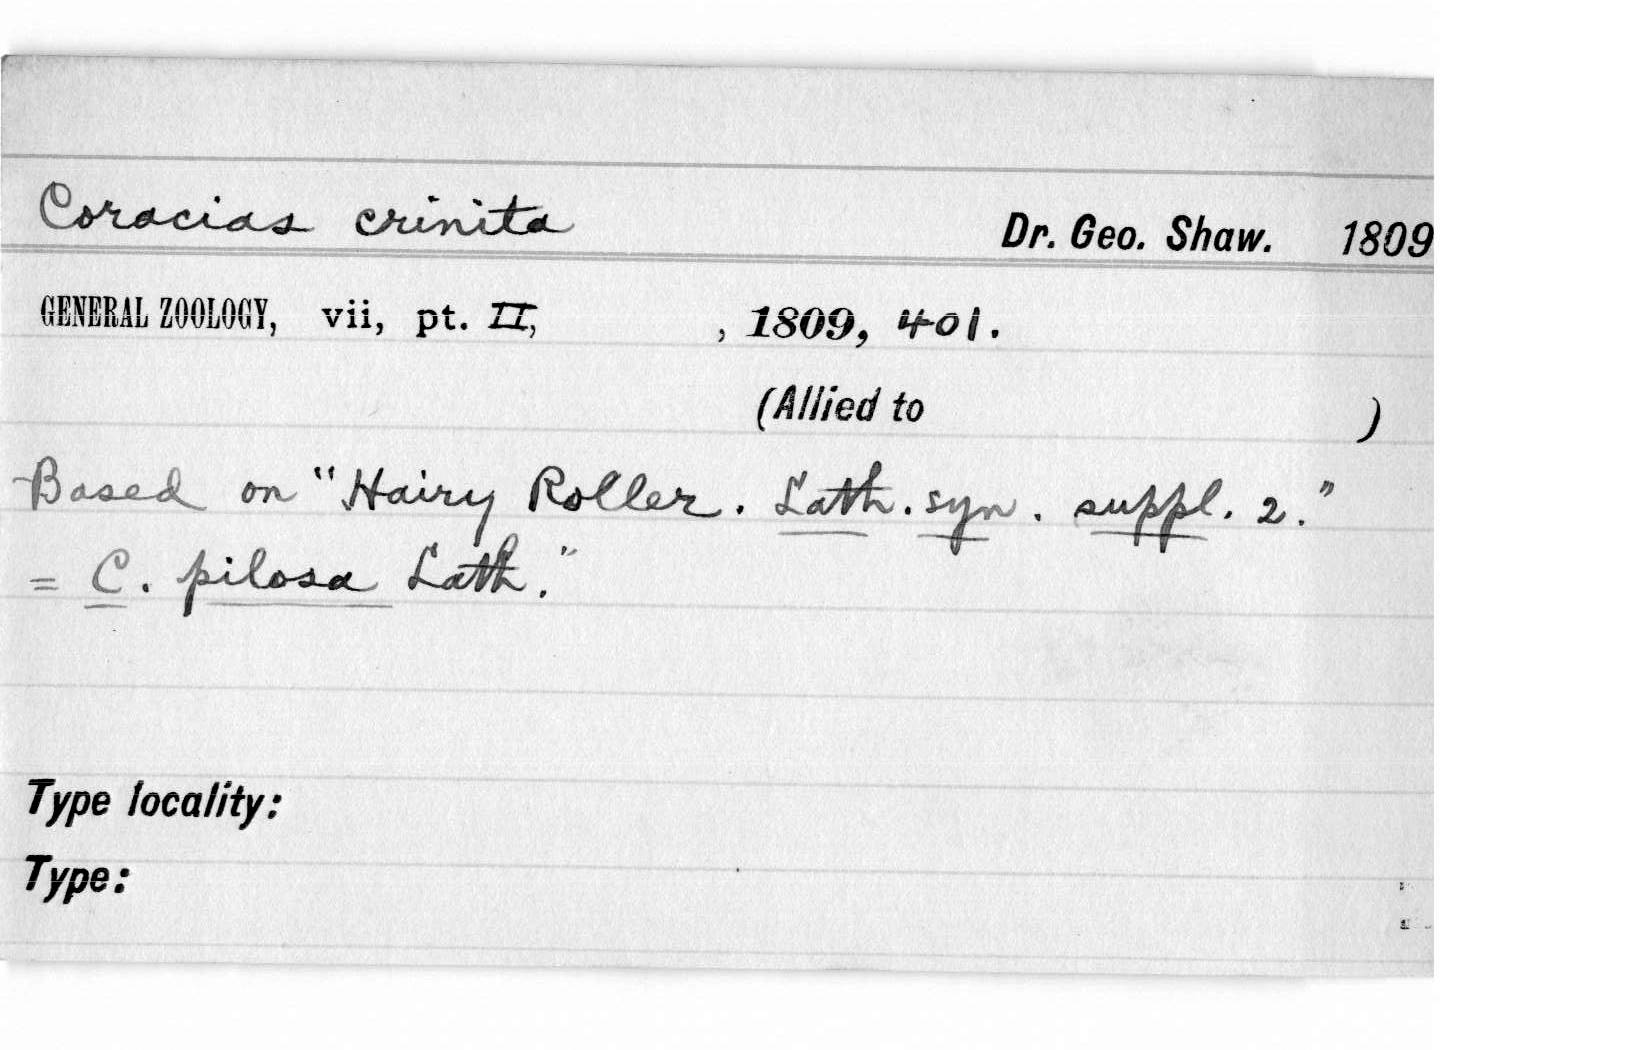 Coracias crinita Dr. Geo. Shaw. 1809
GENERAL ZOOLOGY, vii, pt. II, , 1809, 401.
(Allied to )
Based on "Hairy Roller. Lath. syn. suppl. 2."
= C. pilosa Lath."
Type locality:
Type: